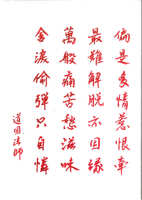 偏是多情惹恨牽
最難解脫示因緣
萬般痛苦愁滋味
含淚偷彈只自憐
道因法師